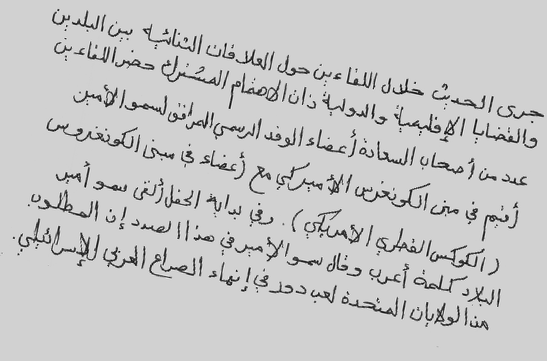 جرى الحديث خلال اللقاءين حول العلاقات الثنائية بين البلدين
والقضايا الإقليمية والدولية ذات الاهتمام المشترك حضر اللقاءين
عدد من أصحاب السعادة أعضاء الوفد الرسمي المرافق لسمو الأمير
أقيم في مبنى الكونغرس الأميركي مع أعضاء في مبنى الكونغروس
(الكوكس القطري الأمريكي). وفي بداية الحفل ألقى سمو أمير
البلاد كلمة أعرب وقال سمو الأمير في هذا الصدد إن المطلوب
من الولايات المتحدة لعب دور في إنهاء الصراع العربي الإسرائيلي.